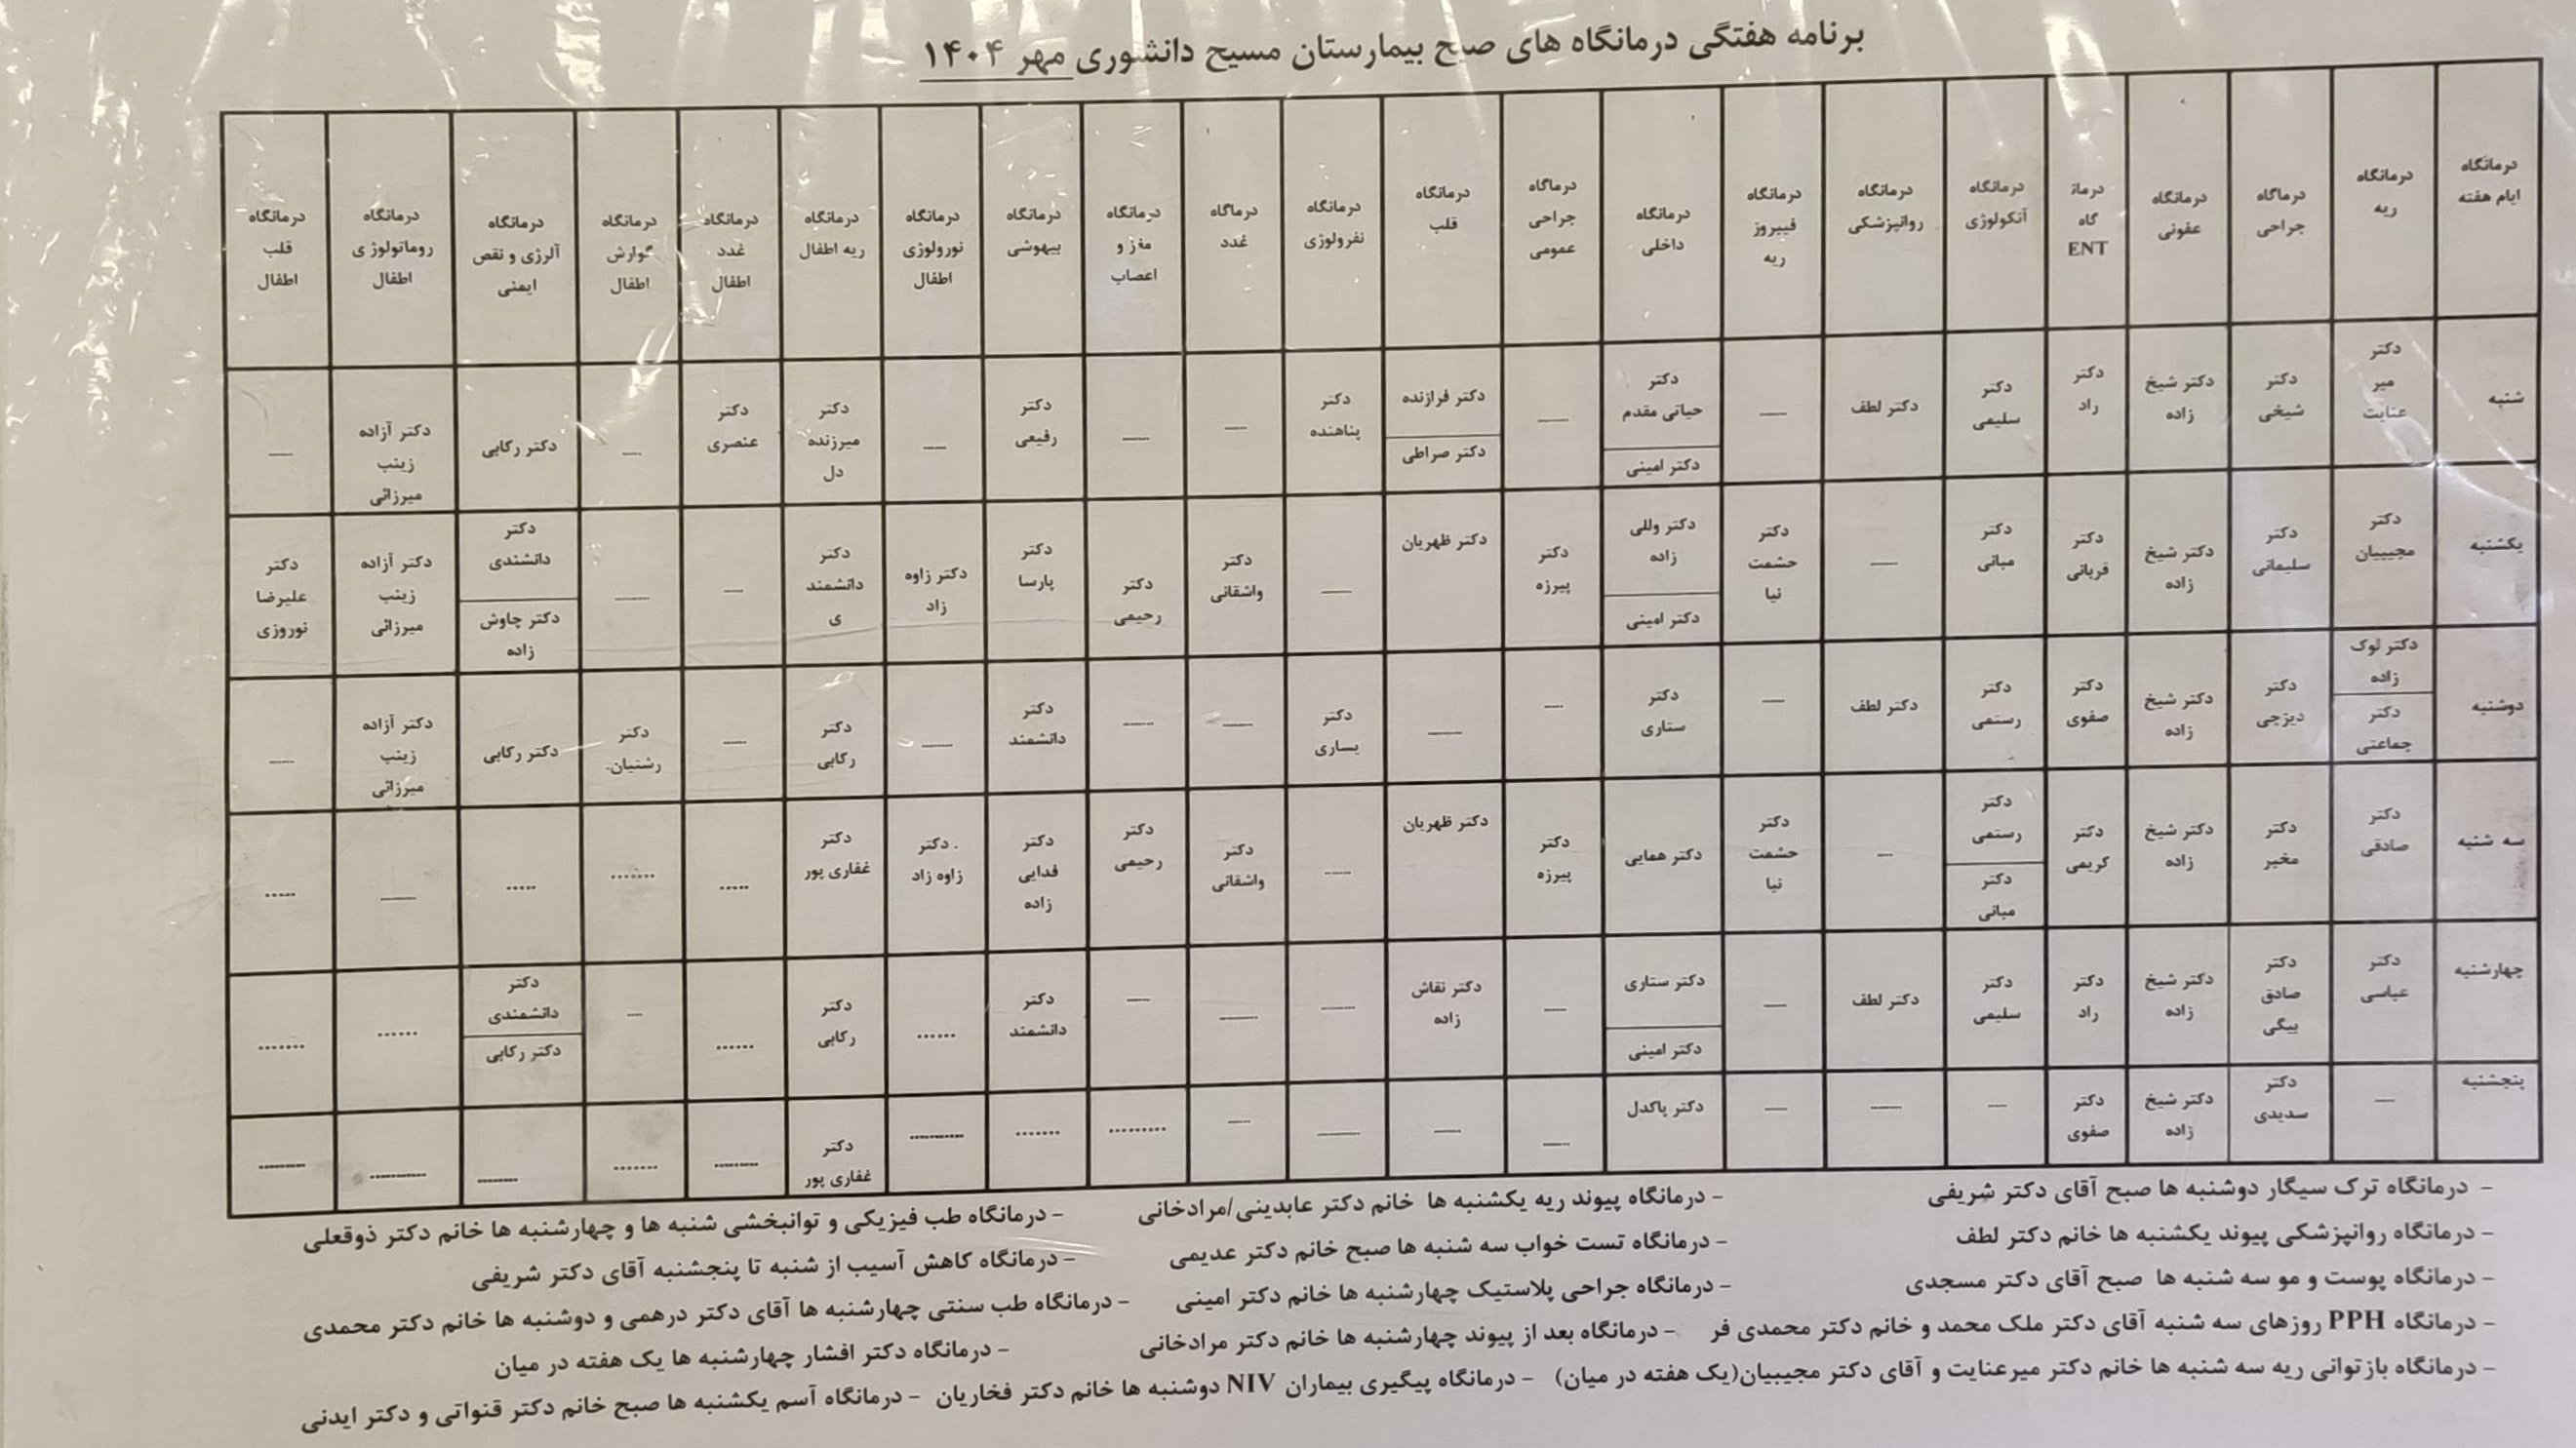 برنامه هفتگی درمانگاه های صبح بیمارستان مسیح دانشوری مهر ۱۴۰۴
درمانگاه ایام هفته | درمانگاه ریه | درماگاه جراحی | درمانگاه عفونی | درماز گاه ENT | درمانگاه آنکولوژی | درمانگاه روانپزشکی | درمانگاه فیبروز ریه | درمانگاه داخلی | درماگاه جراحی عمومی | درمانگاه قلب | درمانگاه نفرولوژی | درماگاه غدد | درمانگاه مغز و اعصاب | درمانگاه بیهوشی | درمانگاه نورولوژی اطفال | درمانگاه ریه اطفال | درمانگاه غدد اطفال | درمانگاه گوارش اطفال | درمانگاه آلرژی و نقص ایمنی | درمانگاه روماتولوژی اطفال | درمانگاه قلب اطفال
شنبه | دکتر میر عنایت | دکتر شیخی | دکتر شیخ زاده | دکتر راد | دکتر سلیمی | دکتر لطف | ---- | دکتر حیاتی مقدم / دکتر امینی | ---- | دکتر فرازنده / دکتر صراطی | دکتر پناهنده | ---- | ---- | دکتر رفیعی | ---- | دکتر میرزنده دل | دکتر عنصری | ---- | دکتر رکابی | دکتر آزاده زینب میرزائی | ----
یکشنبه | دکتر مجیبیان | دکتر سلیمانی | دکتر شیخ زاده | دکتر قربانی | دکتر مبانی | ---- | دکتر حشمت نیا | دکتر وللی زاده / دکتر امینی | دکتر پیرزه | دکتر ظهریان | ---- | دکتر واشقانی | دکتر رحیمی | دکتر پارسا | دکتر زاوه زاد | دکتر دانشمند ی | ---- | ---- | دکتر دانشندی / دکتر چاوش زاده | دکتر آزاده زینب میرزائی | دکتر علیرضا نوروزی
دوشنبه | دکتر لوک زاده / دکتر جماعتی | دکتر دیزجی | دکتر شیخ زاده | دکتر صفوی | دکتر رستمی | دکتر لطف | ---- | دکتر ستاری | ---- | ---- | دکتر یساری | ---- | ---- | دکتر دانشمند | ---- | دکتر رکابی | ---- | دکتر رشتیان | دکتر رکابی | دکتر آزاده زینب میرزائی | ----
سه شنبه | دکتر صادقی | دکتر مخبر | دکتر شیخ زاده | دکتر کریمی | دکتر رستمی / دکتر مبانی | --- | دکتر حشمت نیا | دکتر همایی | دکتر پیرزه | دکتر ظهریان | ---- | دکتر واشقانی | دکتر رحیمی | دکتر فدایی زاده | . دکتر زاوه زاد | دکتر غفاری پور | ..... | ....... | ..... | ---- | .....
چهارشنبه | دکتر عباسی | دکتر صادق بیگی | دکتر شیخ زاده | دکتر راد | دکتر سلیمی | دکتر لطف | ---- | دکتر ستاری / دکتر امینی | ---- | دکتر نقاش زاده | ---- | ---- | ---- | دکتر دانشمند | ...... | دکتر رکابی | ...... | --- | دکتر دانشمندی / دکتر رکابی | ...... | .......
پنجشنبه | --- | دکتر سدیدی | دکتر شیخ زاده | دکتر صفوی | --- | ---- | ---- | دکتر پاکدل | ---- | ---- | ---- | ---- | ......... | ....... | .......... | دکتر غفاری پور | ........ | ....... | ------- | .......... | ........
- درمانگاه ترک سیگار دوشنبه ها صبح آقای دکتر شریفی - درمانگاه پیوند ریه یکشنبه ها خانم دکتر عابدینی/مرادخانی - درمانگاه طب فیزیکی و توانبخشی شنبه ها و چهارشنبه ها خانم دکتر ذوقعلی
- درمانگاه روانپزشکی پیوند یکشنبه ها خانم دکتر لطف - درمانگاه تست خواب سه شنبه ها صبح خانم دکتر عدیمی - درمانگاه کاهش آسیب از شنبه تا پنجشنبه آقای دکتر شریفی
- درمانگاه پوست و مو سه شنبه ها صبح آقای دکتر مسجدی - درمانگاه جراحی پلاستیک چهارشنبه ها خانم دکتر امینی - درمانگاه طب سنتی چهارشنبه ها آقای دکتر درهمی و دوشنبه ها خانم دکتر محمدی
- درمانگاه PPH روزهای سه شنبه آقای دکتر ملک محمد و خانم دکتر محمدی فر - درمانگاه بعد از پیوند چهارشنبه ها خانم دکتر مرادخانی - درمانگاه دکتر افشار چهارشنبه ها یک هفته در میان
- درمانگاه بازتوانی ریه سه شنبه ها خانم دکتر میرعنایت و آقای دکتر مجیبیان(یک هفته در میان) - درمانگاه پیگیری بیماران NIV دوشنبه ها خانم دکتر فخاریان - درمانگاه آسم یکشنبه ها صبح خانم دکتر قنواتی و دکتر ایدنی